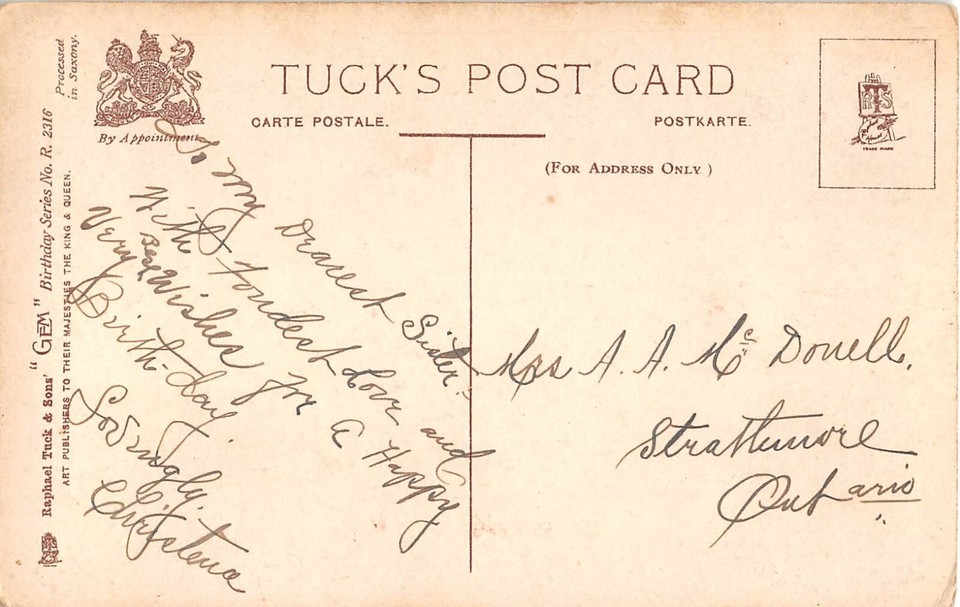 TUCK'S POST CARD
CARTE POSTALE.
POSTKARTE.
(FOR ADDRESS ONLY)
By Appointment
Processed
in Saxony.
Raphael Tuck & Sons' "GEM" Birthday Series No. R. 2316
ART PUBLISHERS TO THEIR MAJESTIES THE KING & QUEEN.
TRADE MARK
To My Dearest Sister:-
With fondest Love and
Very best Wishes for a Happy
Birth-day.
Lovingly.
Christena
Mrs A. A. McDonell.
Strathmore
Ontario